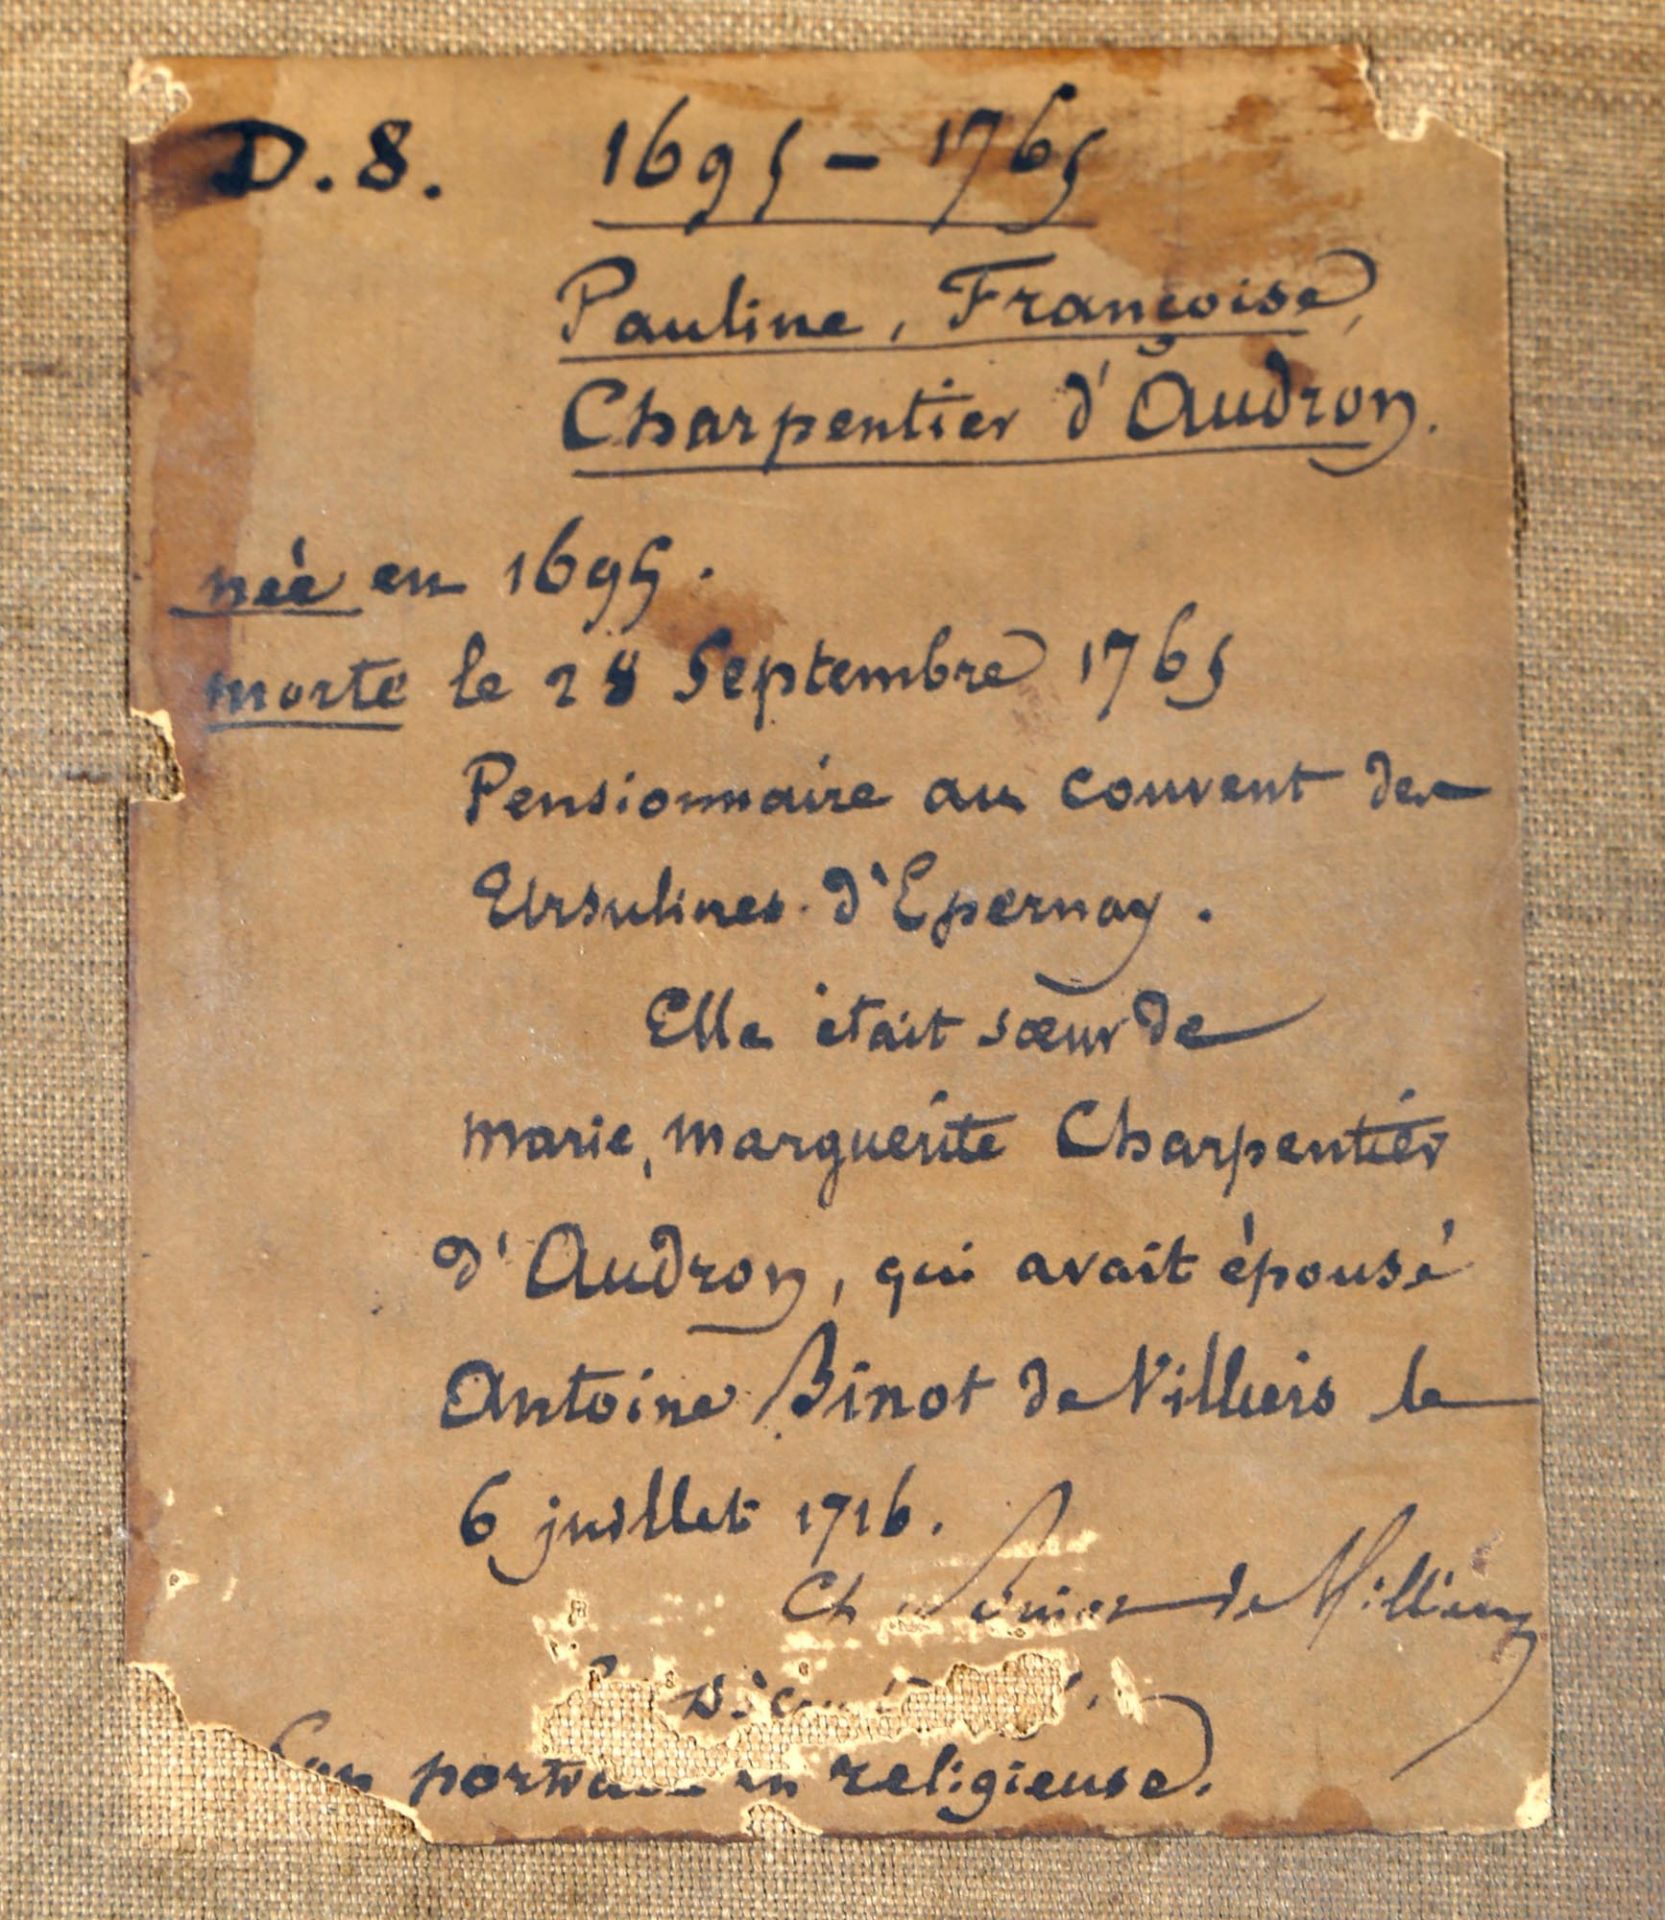 D.8. 1695 - 1765
Pauline, Françoise,
Charpentier d'Audron.
née en 1695.
morte le 28 Septembre 1765
Pensionnaire au couvent des
Ursulines d'Epernay.
Elle était sœur de
marie, marguerite Charpentier
d'Audron, qui avait épousé
Antoine Binot de Villiers le
6 juillet 1716.
Ch de
Son portrait en religieuse.